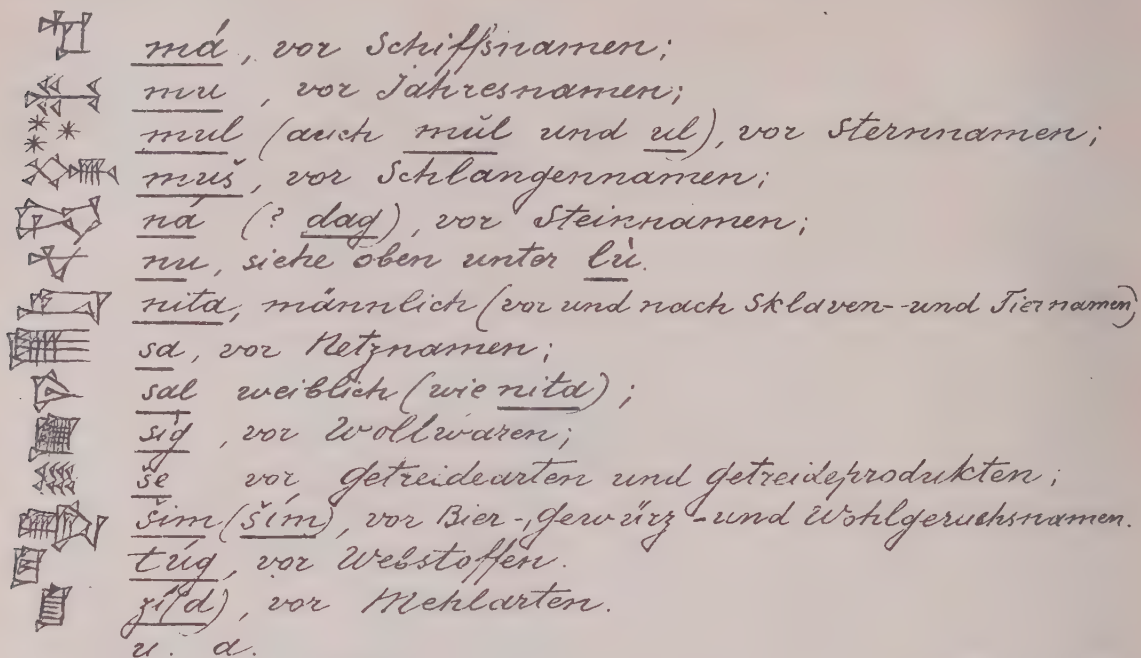 má, vor Schiffsnamen;
mu, vor Jahresnamen;
mul (auch mùl und ul), vor Sternnamen;
muš, vor Schlangennamen;
ná (? dag), vor Steinnamen;
nu, siehe oben unter lù.
nita, männlich (vor und nach Sklaven- und Tiernamen)
sa, vor Netznamen;
sal weiblich (wie nita);
síg, vor Wollwaren;
še vor Getreidearten und Getreideprodukten;
šim (ším), vor Bier-, Gewürz- und Wohlgeruchsnamen.
túg, vor Webstoffen.
zí(d), vor Mehlarten.
u. a.